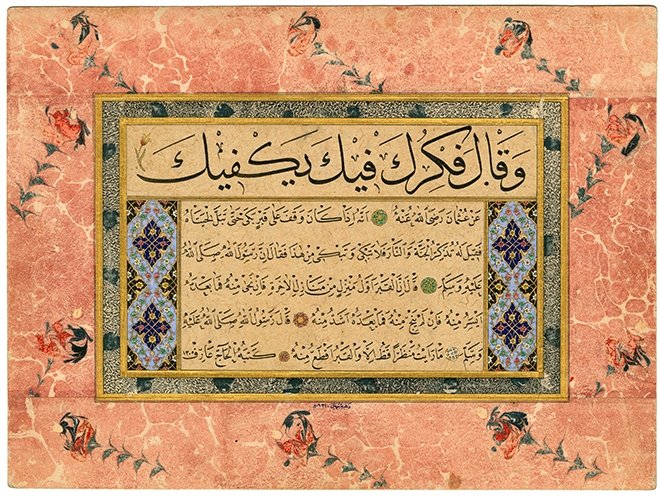 وَقَالَ فِكْرُكَ فِيكَ يَكْفِيكَ
عَنْ عُثْمَانَ رَضِىَ اللهُ عَنْهُ اَنَّهُ اِذَا كَانَ وَقَفَ عَلَى قَبْرٍ بَكَى حَتَّى تَبُلَّ
فَقِيلَ لَهُ تَذْكُرُ الْجَنَّةَ وَالنَّارَ فَلَا تَبْكِى وَتَبْكِى مِنْ هٰذَا فَقَالَ اِنَّ رَسُولَ اللهِ صَلَّى اللهُ
عَلَيْهِ وَسَلَّمَ قَالَ اِنَّ الْقَبْرَ اَوَّلُ مَنْزِلٍ مِنْ مَنَازِلِ الْاٰخِرَةِ فَاِنْ نَجٰى مِنْهُ فَمَا بَعْدَهُ
اَيْسَرُ مِنْهُ فَاِنْ لَمْ يَنْجُ مِنْهُ فَمَا بَعْدَهُ اَشَدُّ مِنْهُ قَالَ رَسُولُ اللهِ صَلَّى اللهُ عَلَيْهِ
وَسَلَّمَ مَا رَاَيْتُ مَنْظَرًا قَطُّ اِلَّا وَالْقَبْرُ اَفْظَعُ مِنْهُ كَتَبَهُ الْحَاج عَارِف